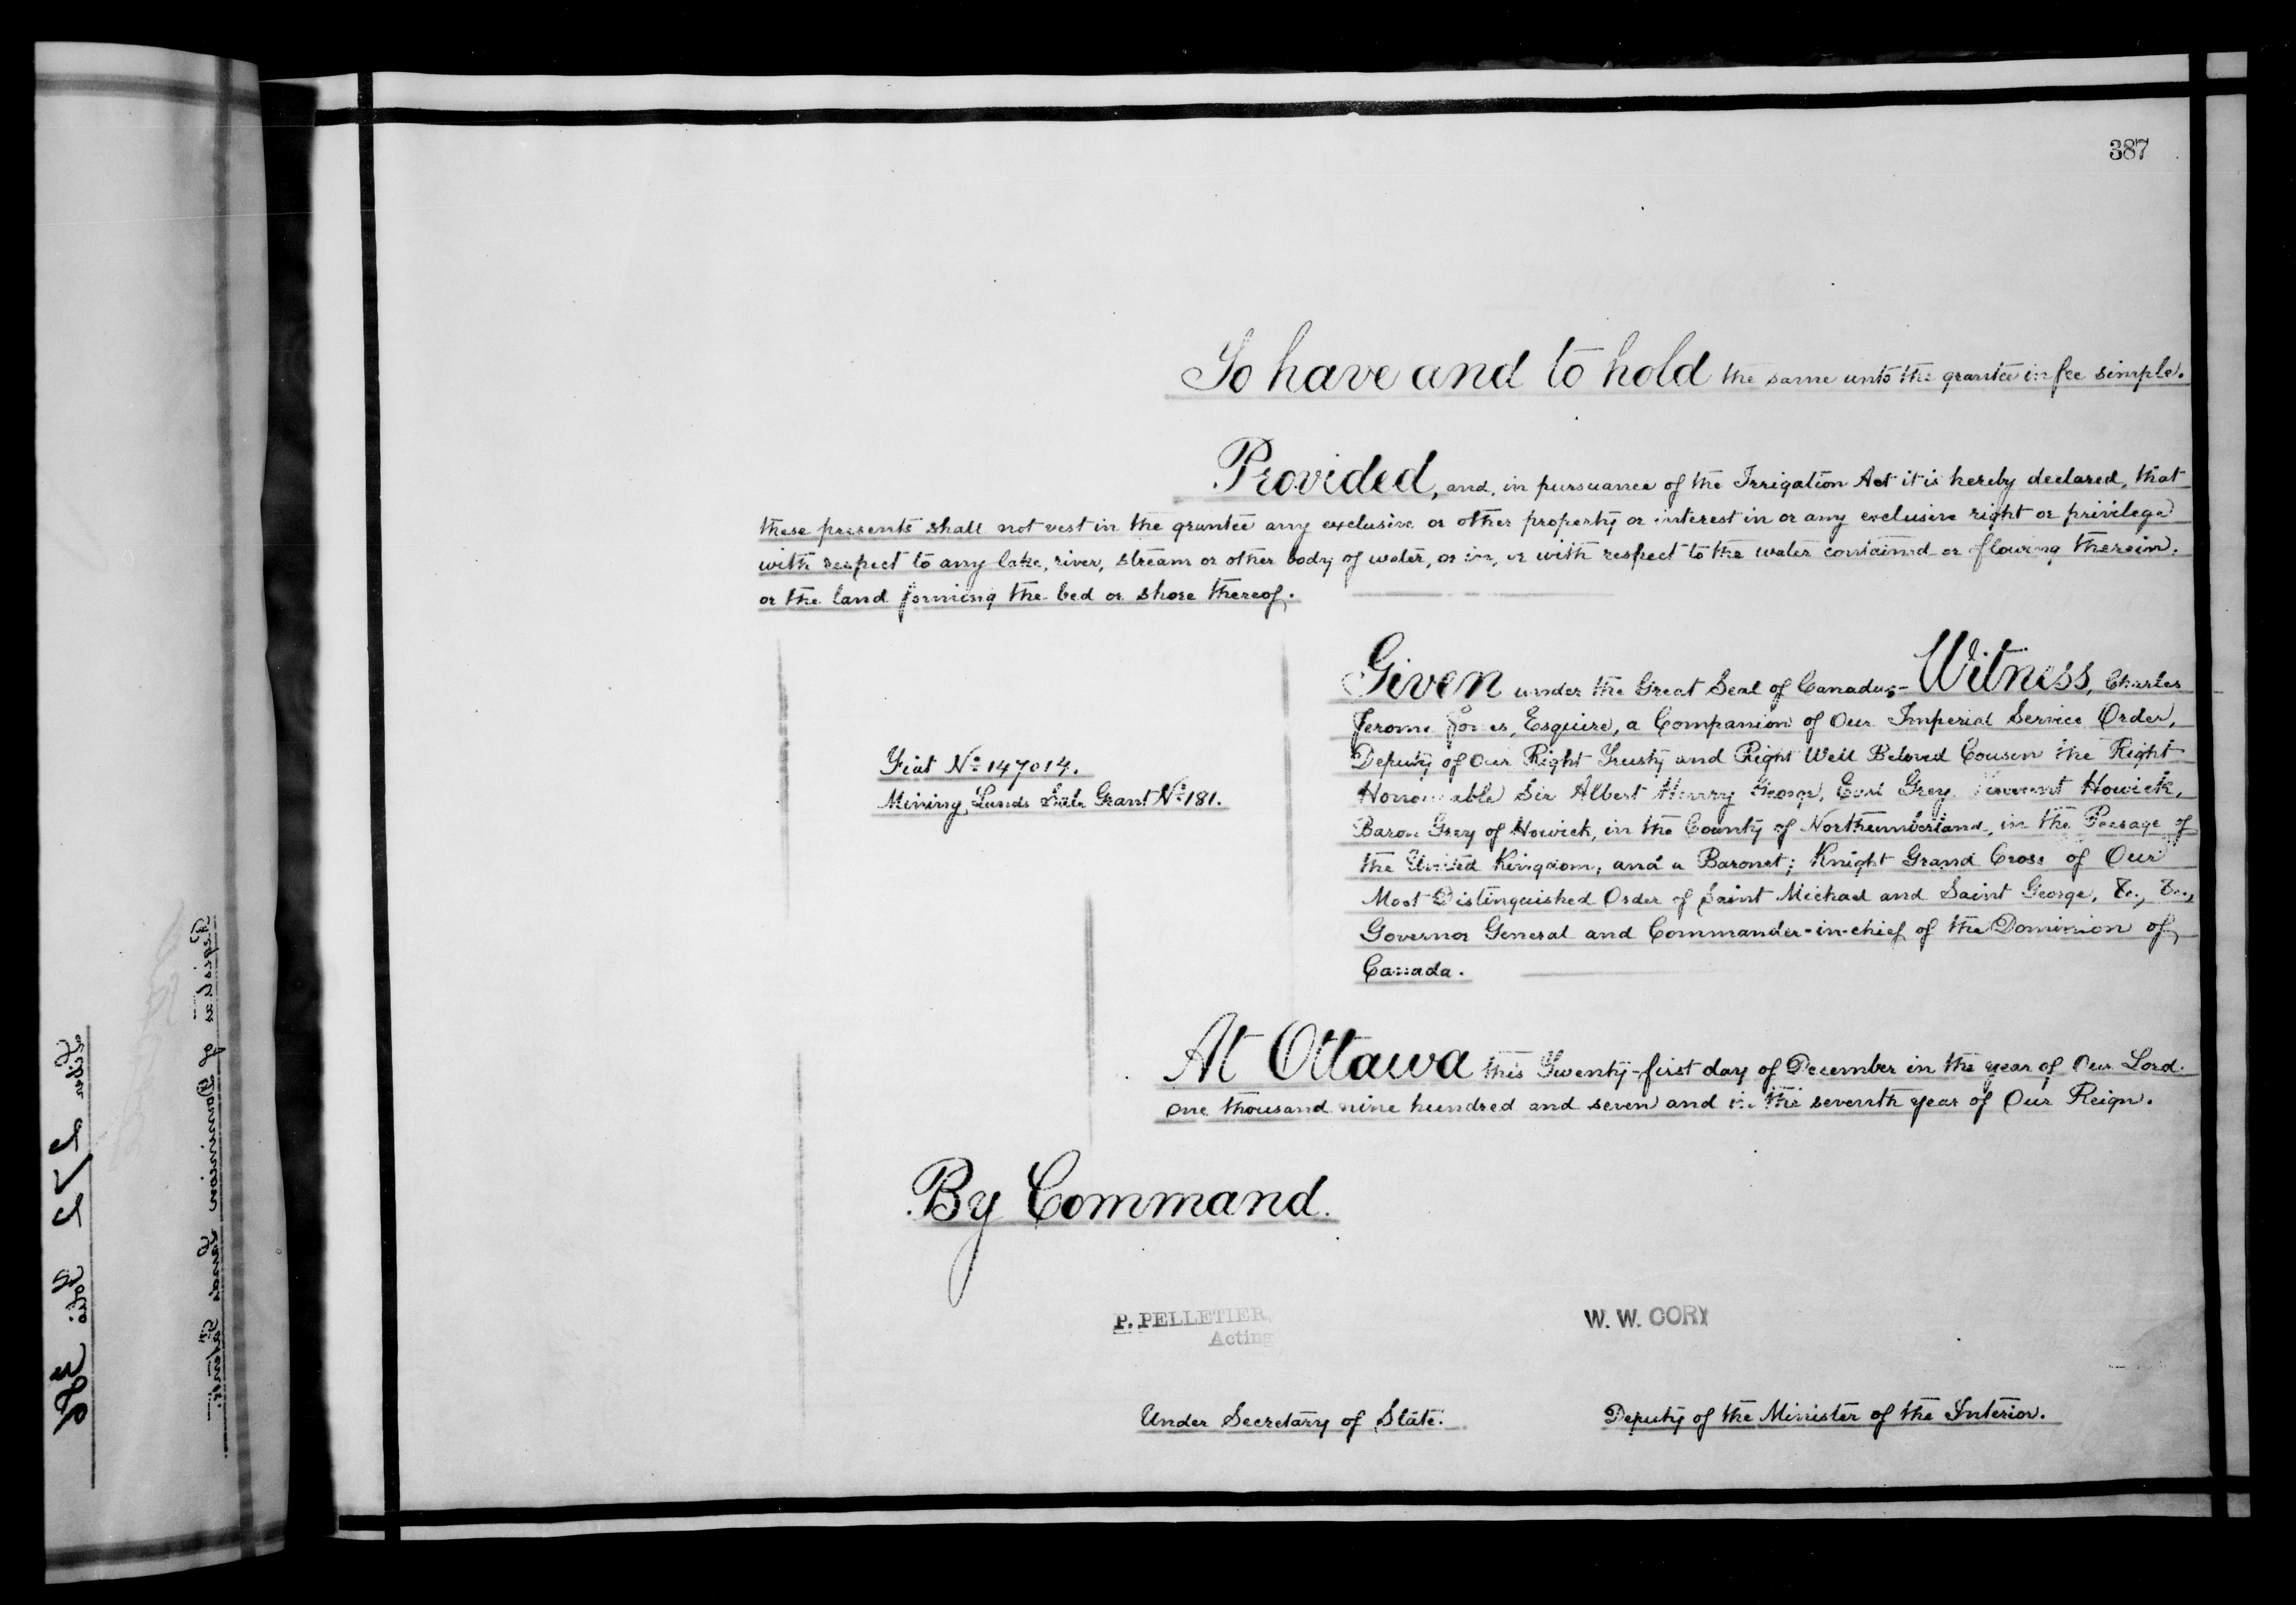 387
To have and to hold the same unto the grantee in fee simple.
Provided, and, in pursuance of the Irrigation Act it is hereby declared, that
these presents shall not vest in the grantee any exclusive or other property or interest in or any exclusive right or privilege
with respect to any lake, river, stream or other body of water, or in, or with respect to the water contained or flowing therein.
or the land forming the bed or shore thereof.
Given under the Great Seal of Canada;- Witness, Charles
Jerome Jones, Esquire, a Companion of Our Imperial Service Order,
Deputy of Our Right Trusty and Right Well Beloved Cousin the Right
Honourable Sir Albert Henry George, Earl Grey, Viscount Howick,
Baron Grey of Howick, in the County of Northumberland, in the Peerage of
the United Kingdom, and a Baronet; Knight Grand Cross of Our
Most Distinguished Order of Saint Michael and Saint George, &c., &c.,
Governor General and Commander-in-chief of the Dominion of
Canada.
Fiat No. 147014.
Mining Lands Sale Grant No. 181.
At Ottawa this Twenty-first day of December in the year of Our Lord
one thousand nine hundred and seven and in the seventh year of Our Reign.
By Command.
P. PELLETIER,
Acting
W. W. CORY
Under Secretary of State.
Deputy of the Minister of the Interior.
Register of Dominion Lands Patents
Liber 272 Folio 386